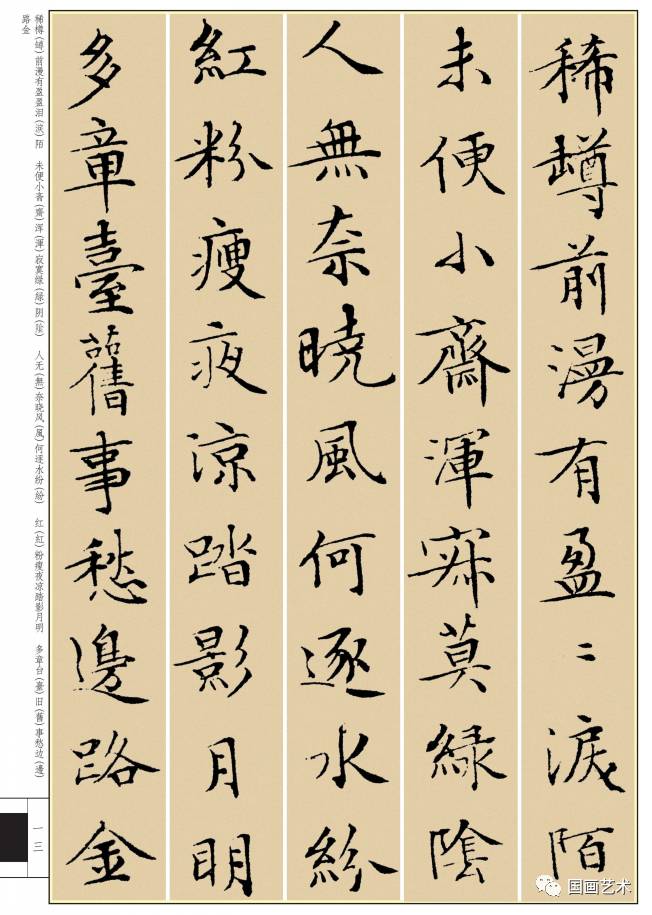 稀罇前漫有盈〻淚陌
未便小齋渾寂莫綠陰
人無奈曉風何逐水紛
紅粉瘦夜涼踏影月明
多章臺舊事愁邊路金
稀樽(罇)前漫有盈盈泪(淚)陌 未便小斋(齋)浑(渾)寂寞绿(綠)阴(陰) 人无(無)奈晓风(風)何逐水纷(紛) 红(紅)粉瘦夜凉踏影月明 多章台(臺)旧(舊)事愁边(邊)
路金
一三
国画艺术